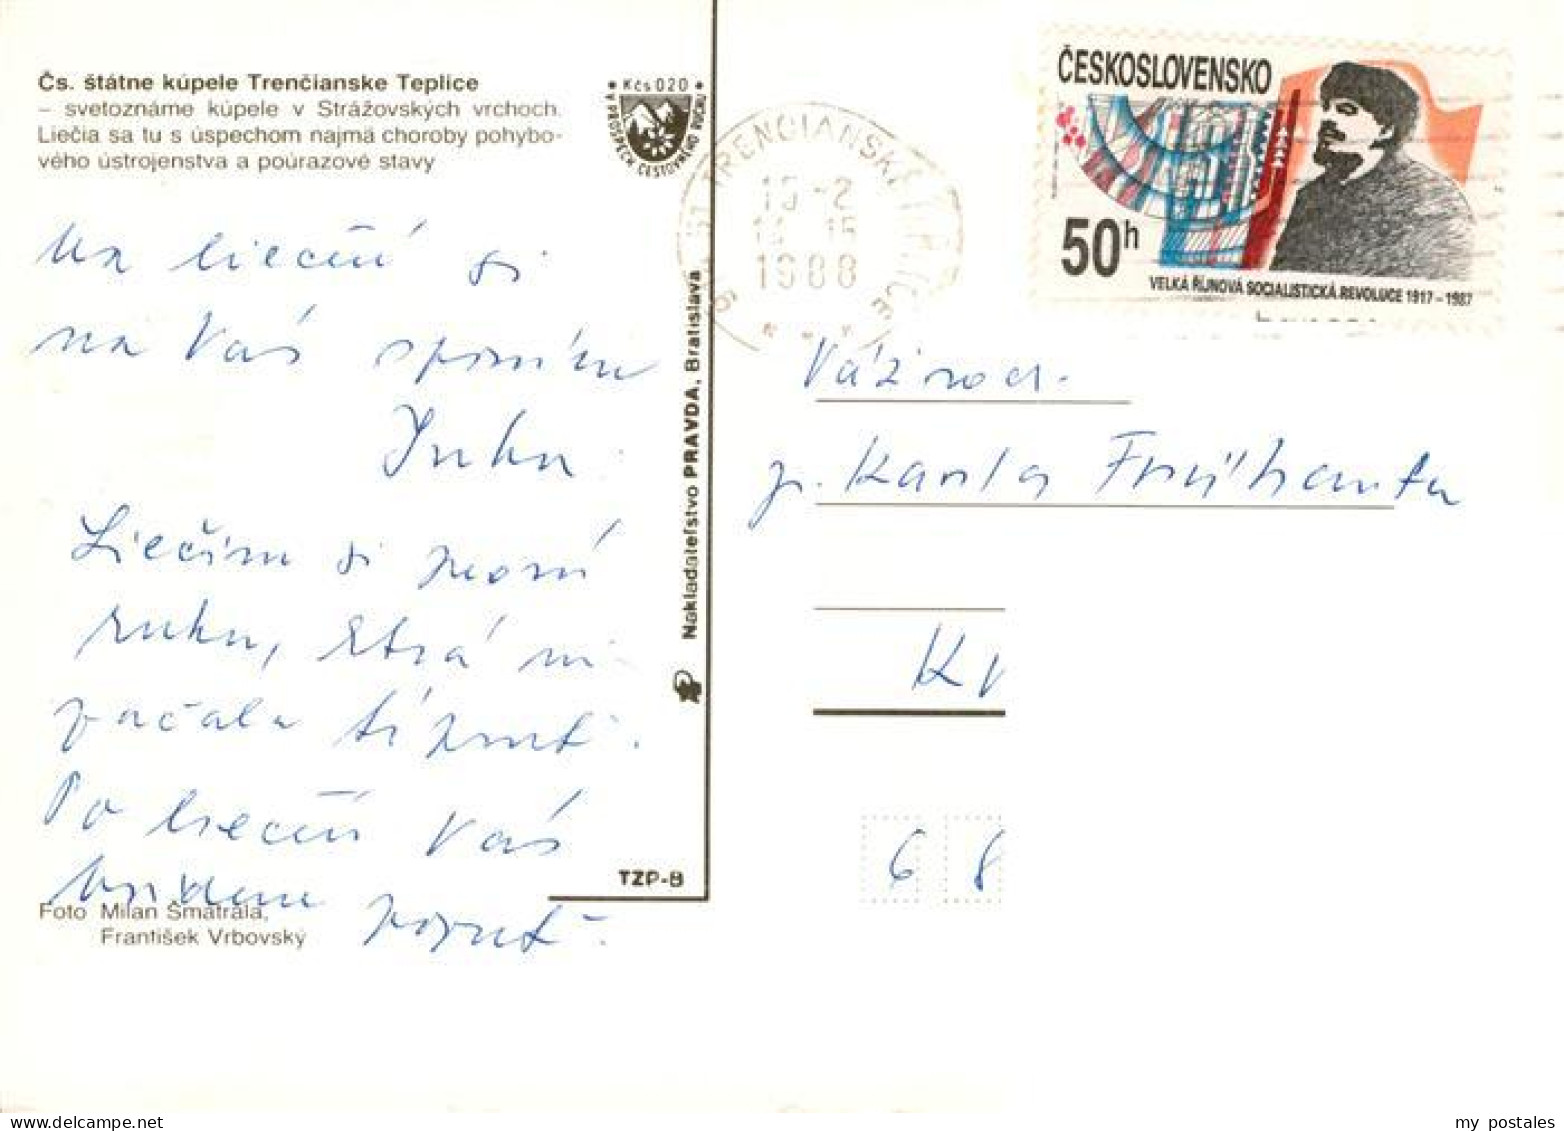 Čs. štátne kúpele Trenčianske Teplice
– svetoznáme kúpele v Strážovských vrchoch.
Liečia sa tu s úspechom najmä choroby pohybo-
vého ústrojenstva a poúrazové stavy
Kčs 0.20
V PROSPECH CESTOVNÉHO RUCHU
Na liečení si
na Vás spomína
Liečim si pravú
ruku, ktorá mi
začala tŕpnuť.
Po liečení Vás
prídem pozrieť.
Foto Milan Šmatrala,
František Vrbovský
TZP-8
Nakladateľstvo PRAVDA, Bratislava
TRENČIANSKE TEPLICE
1988
ČESKOSLOVENSKO
50h
VELKÁ ŘÍJNOVÁ SOCIALISTICKÁ REVOLUCE 1917–1987
Váž. rod.
p. Karla
6 8
my postales